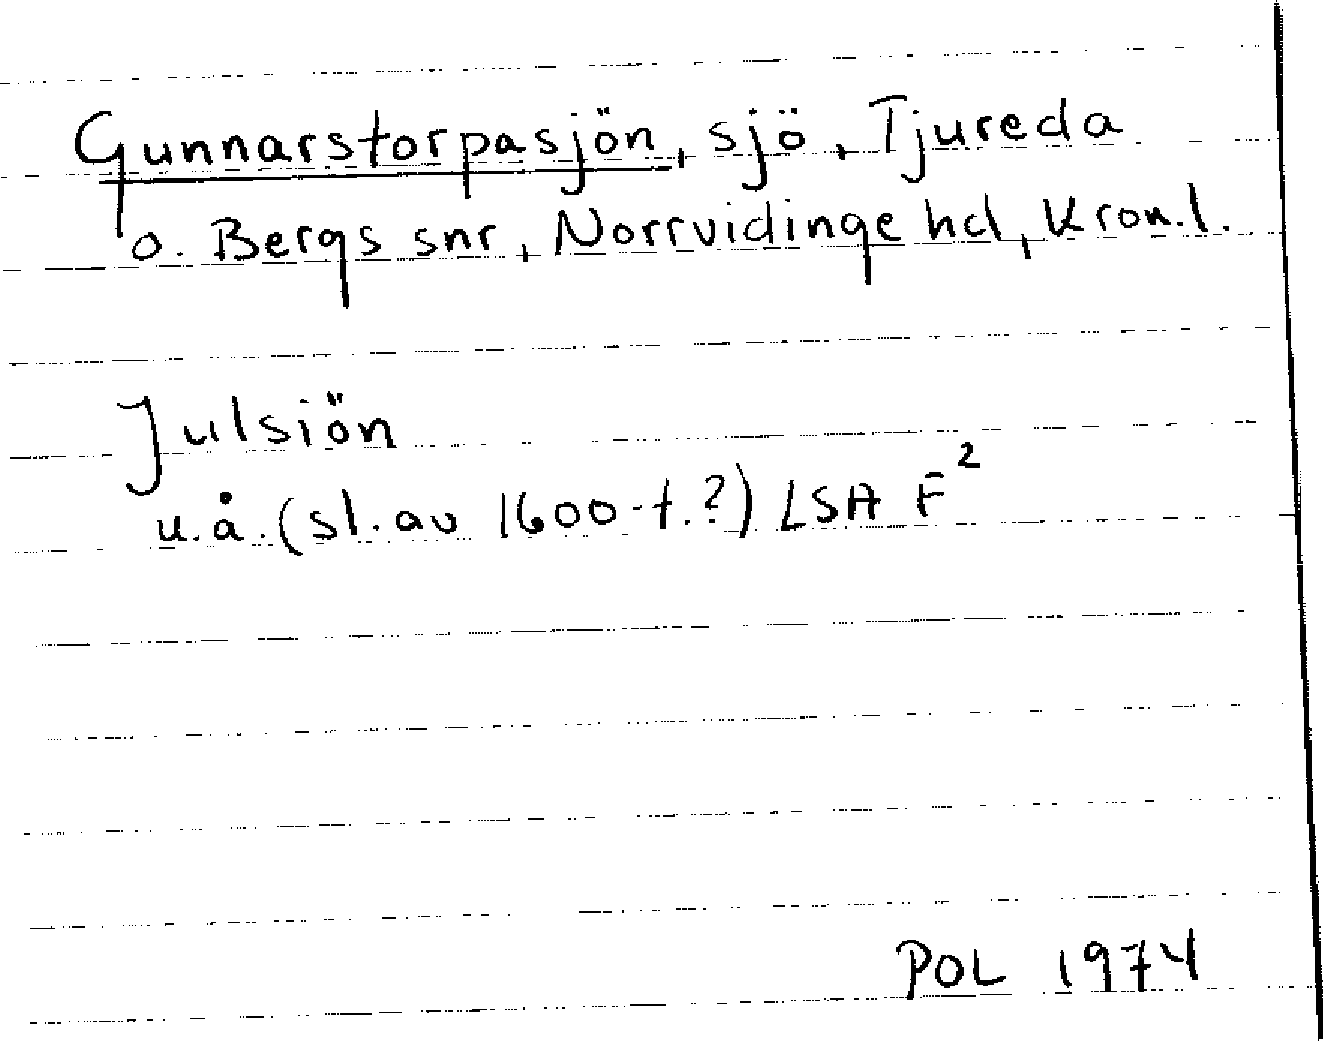 Gunnarstorpasjön, sjö, Tjureda
o. Bergs snr, Norrvidinge hd, Kron.l.
Julsiön
u.å. (sl. av 1600-t.?) LSA F²
POL 1974